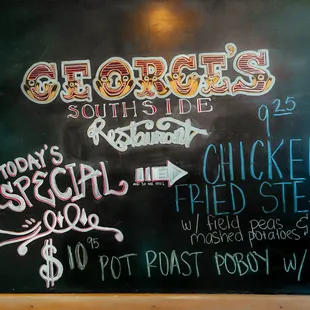 GEORGE'S
SOUTHSIDE
Restaurant
TODAY'S
SPECIAL
9 25
CHICKE
FRIED STE
w/ field peas &
mashed potatoes
$10 95
POT ROAST POBOY w/